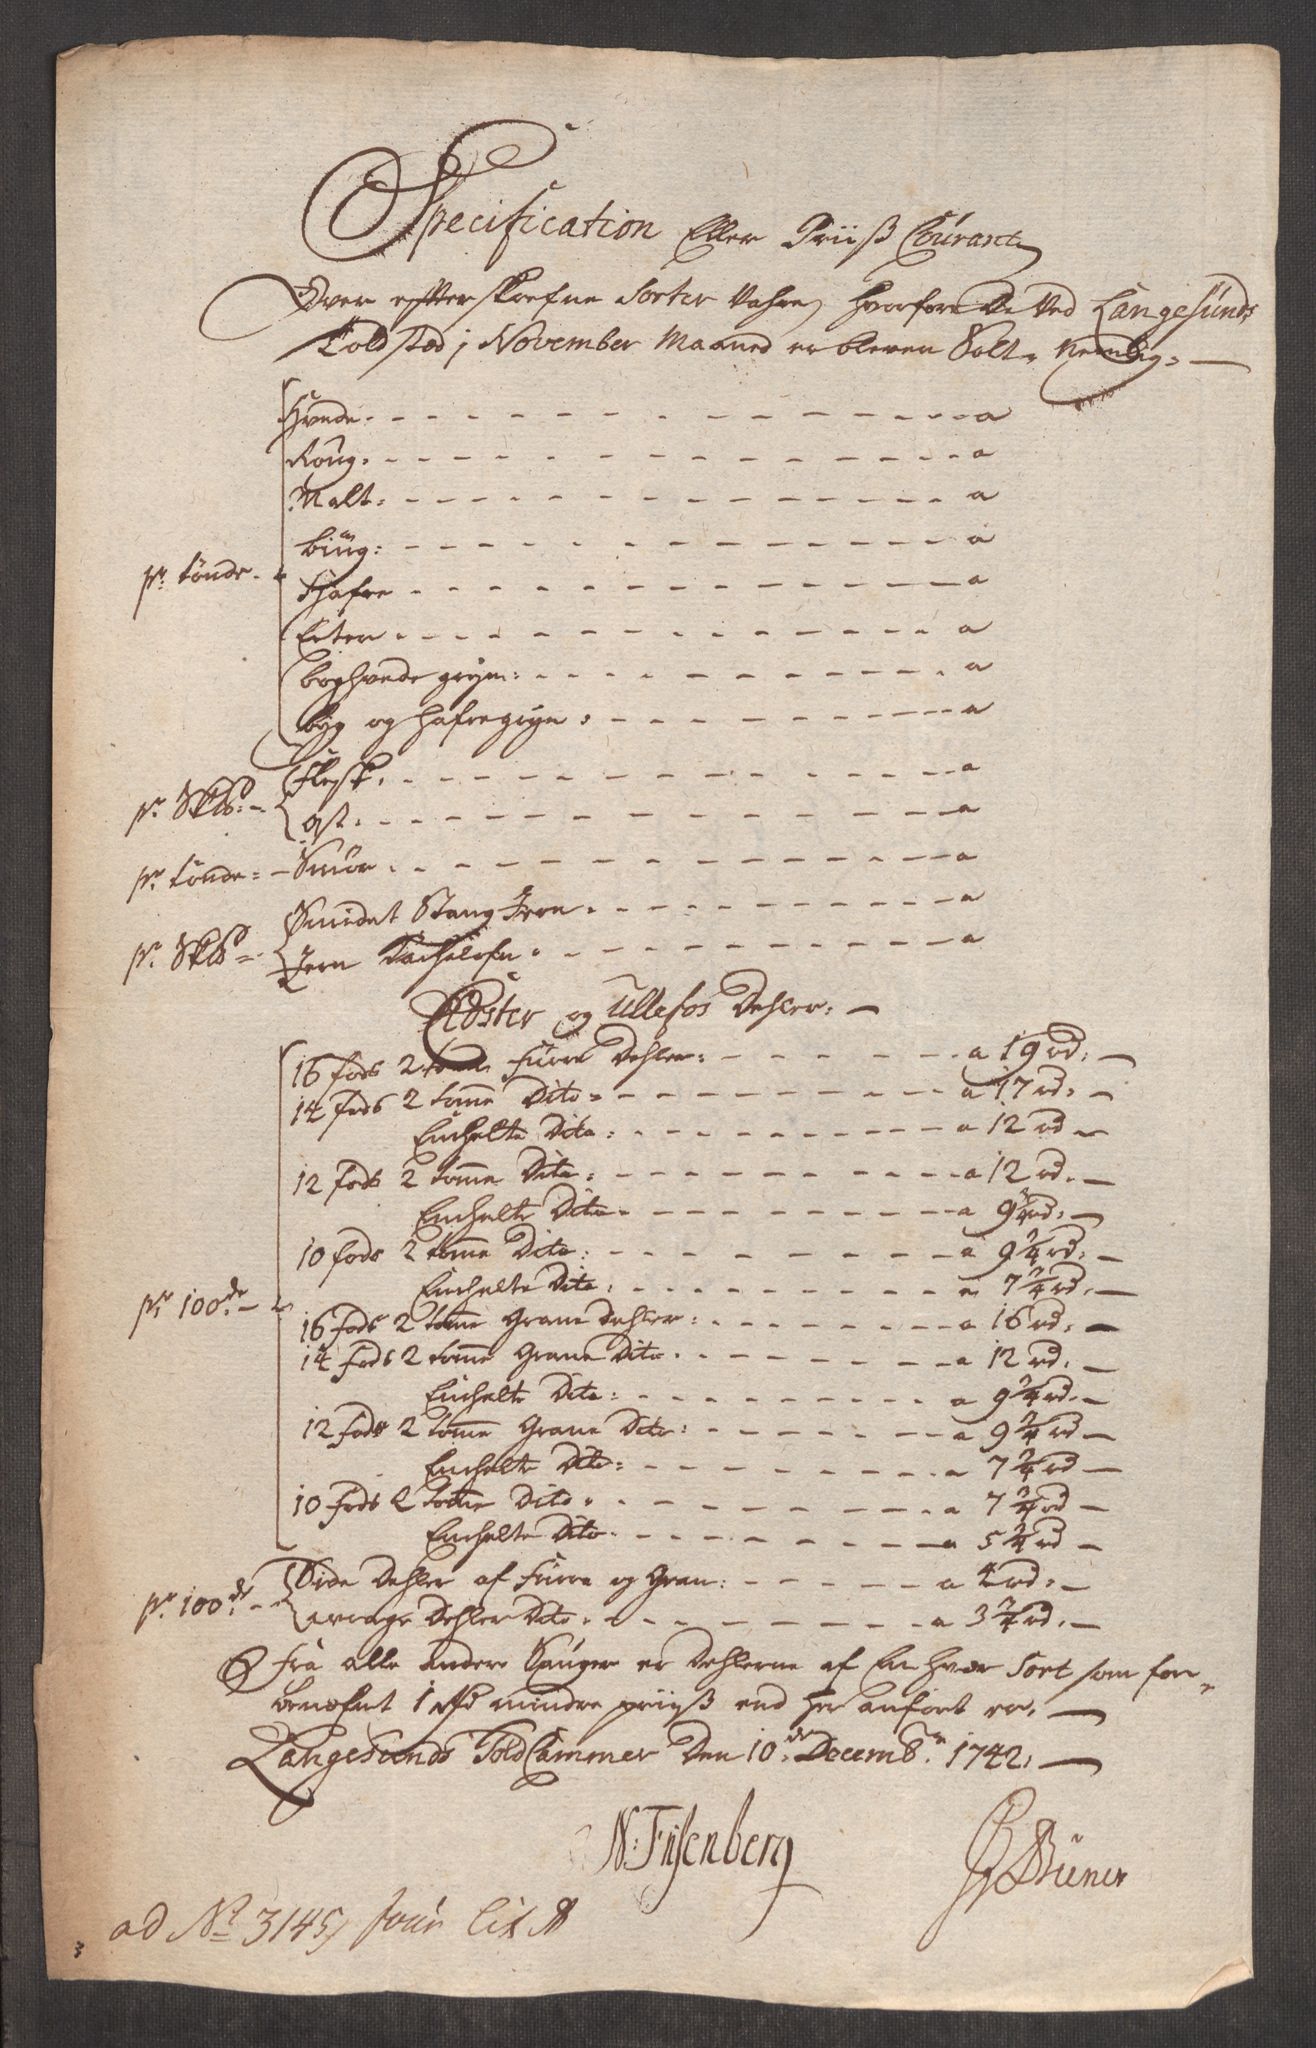 Specification Eller Priiß Courant
Over efterskrefne Sorter Vahre, hvorfore De Ved Langesunds
Toldsted i November Maaned er bleven Solt, Nemlig: —
Hvede - - - a
Roug - - - a
Malt - - - a
biug: - - - a
pr. tönde - Hafre - - - a
Erter - - - a
boghvede gryn: - - - a
byg og hafregryn: - - - a
Flesk - - - a
pr. Sk℔: -
Ost - - - a
pr. tönde = - Smör - - - a
Smidet Stang Jern - - - a
pr. Sk℔ -
Jern Kachelofn - - - a
Edster og Ullefos Dehler: —
16 fods 2 tom Furre Dehler: - - - a 19 rd: —
14 fods 2 tomme Dito - - - a 17 rd: —
Enchelte Dito: - - - a 12 rd —
12 fods 2 tomme Dito: - - - a 12 rd. —
Enchelte Dito - - - a 9 3/4 rd: —
10 fods 2 tomme Dito: - - - a 9 3/4 rd: —
pr. 100de - Enchelte Dito: - - - a 7 3/4 rd. —
16 fods 2 tomme Grane Dehler: - - - a 16 rd. —
14 fods 2 tomme Grane Dito - - - a 12 rd. —
Enchelte Dito: - - - a 9 3/4 rd. —
12 fods 2 tomme Grane Dito: - - - a 9 3/4 rd —
Enchelte Dito: - - - a 7 3/4 rd —
10 fods 2 tomme Dito - - - a 7 3/4 rd —
Enchelte Dito - - - a 5 3/4 rd —
Side Dehler af Furre og Gran: - - - a 4 rd: —
pr. 100de: -
wrage Dehler Dito - - - a 3 3/4 rd. —
Fra alle andre Sauger er Dehlerne af En hver Sort som for-
benefnt 1 rd mindre priiß end her anfört er. —
Langesunds Told Cammer Den 10de Decembr. 1742. —
N: Friisenberg
Büner
ad No 3145 four Lit A
3